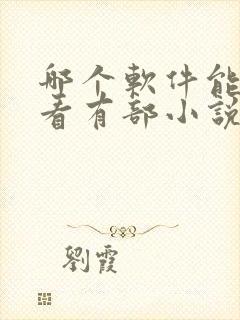 哪个軟件能
看有部小説
劉霞